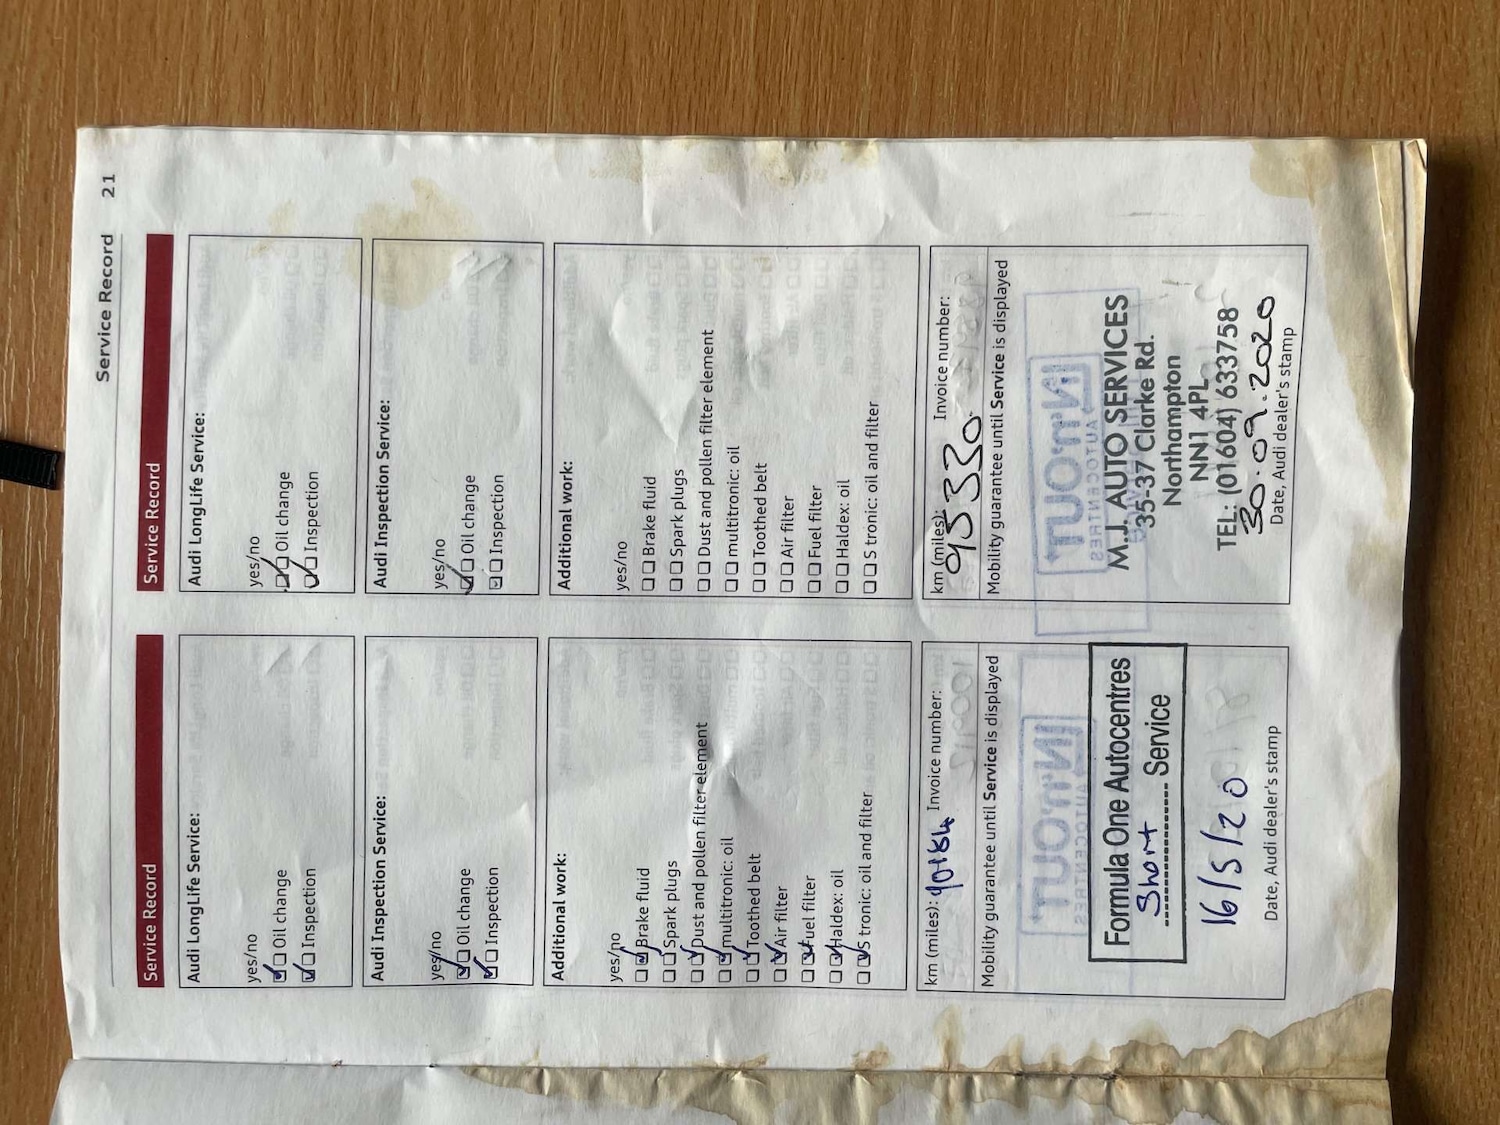 Service Record 21
Service Record
Audi LongLife Service:
yes/no
Oil change
Inspection
Audi Inspection Service:
yes/no
Oil change
Inspection
Additional work:
yes/no
Brake fluid
Spark plugs
Dust and pollen filter element
multitronic: oil
Toothed belt
Air filter
Fuel filter
Haldex: oil
S tronic: oil and filter
km (miles): Invoice number:
Mobility guarantee until Service is displayed
Formula One Autocentres
Short
Service
16/5/20
Date, Audi dealer's stamp
Service Record
Audi LongLife Service:
yes/no
Oil change
Inspection
Audi Inspection Service:
yes/no
Oil change
Inspection
Additional work:
yes/no
Brake fluid
Spark plugs
Dust and pollen filter element
multitronic: oil
Toothed belt
Air filter
Fuel filter
Haldex: oil
S tronic: oil and filter
km (miles): 95330 Invoice number:
Mobility guarantee until Service is displayed
M.J. AUTO SERVICES
35-37 Clarke Rd.
Northampton
NN1 4PL
TEL: (01604) 633758
30.09.2020
Date, Audi dealer's stamp